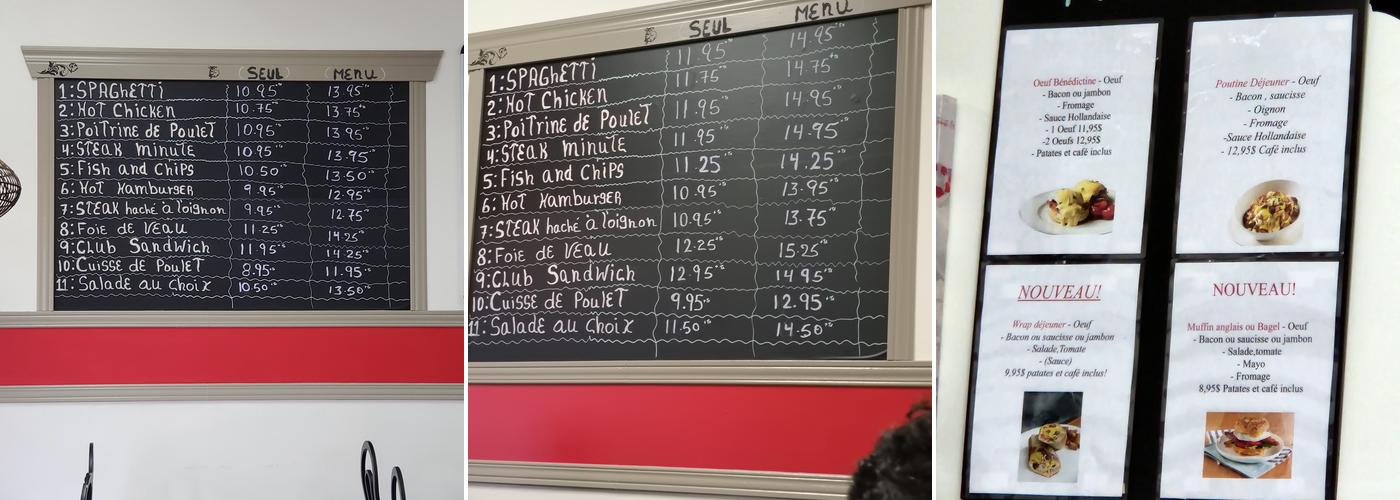 SEUL MENU
1: SPAGhETTi 10.95 13.95
2: HOT Chicken 10.75 13.75
3: POiTRiNE de POULET 10.95 13.95
4: STEAK MiNUTE 10.95 13.95
5: Fish and ChiPs 10.50 13.50
6: HOT HambURGER 9.95 12.95
7: STEAK haché à l'oignon 9.95 12.75
8: FOiE de VEAU 11.25 14.25
9: Club SandWich 11.95 14.25
10: CUiSSE de POULET 8.95 11.95
11: Salade au choix 10.50 13.50
SEUL MENU
1: SPAGhETTi 11.95 14.95
2: HOT Chicken 11.75 14.75
3: POiTRiNE de POULET 11.95 14.95
4: STEAK MiNUTE 11.95 14.95
5: Fish and ChiPs 11.25 14.25
6: HOT HambURGER 10.95 13.95
7: STEAK haché à l'oignon 10.95 13.75
8: FOiE de VEAU 12.25 15.25
9: Club SandWich 12.95 14.95
10: CUiSSE de POULET 9.95 12.95
11: Salade au choix 11.50 14.50
Oeuf Bénédictine - Oeuf
- Bacon ou jambon
- Fromage
- Sauce Hollandaise
- 1 Oeuf 11,95$
-2 Oeufs 12,95$
- Patates et café inclus
Poutine Déjeuner - Oeuf
- Bacon , saucisse
- Oignon
- Fromage
-Sauce Hollandaise
- 12,95$ Café inclus
NOUVEAU!
Wrap déjeuner - Oeuf
- Bacon ou saucisse ou jambon
- Salade,Tomate
- (Sauce)
9,95$ patates et café inclus!
NOUVEAU!
Muffin anglais ou Bagel - Oeuf
- Bacon ou saucisse ou jambon
- Salade,tomate
- Mayo
- Fromage
8,95$ Patates et café inclus